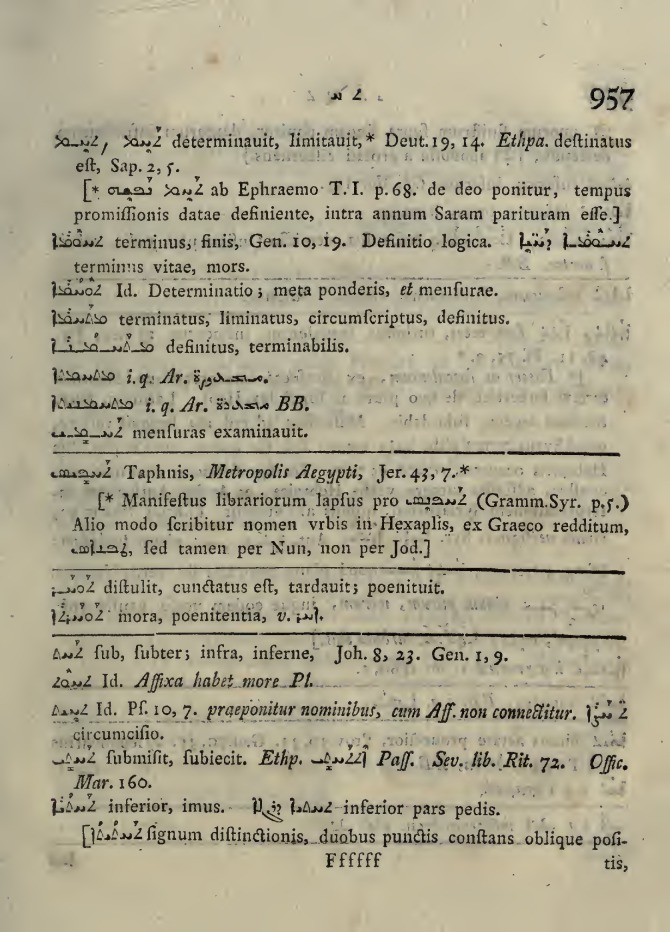 957
determinauit, limitauit,* Deut. 19, 14. Ethpa. deſtinatus
eſt, Sap. 2, 5.
[* ab Ephraemo T. I. p. 68. de deo ponitur, tempus
promiſſionis datae definiente, intra annum Saram parituram eſſe.]
terminus, finis, Gen. 10, 19. Definitio logica.
terminus vitae, mors.
Id. Determinatio; meta ponderis, et menſurae.
terminatus, liminatus, circumſcriptus, definitus.
definitus, terminabilis.
i. q. Ar.
i. q. Ar. BB.
menſuras examinauit.
Taphnis, Metropolis Aegypti, Jer. 43, 7.*
[* Manifeſtus librariorum lapſus pro (Gramm. Syr. p. 5.)
Alio modo ſcribitur nomen vrbis in Hexaplis, ex Graeco redditum,
ſed tamen per Nun, non per Jod.]
diſtulit, cunctatus eſt, tardauit; poenituit.
mora, poenitentia, v.
ſub, ſubter; infra, inferne, Joh. 8, 23. Gen. 1, 9.
Id. Affixa habet more Pl.
Id. Pſ. 10, 7. praeponitur nominibus, cum Aff. non connectitur.
circumciſio.
ſubmiſit, ſubiecit. Ethp. Paſſ. Sev. lib. Rit. 72. Offic.
Mar. 160.
inferior, imus. inferior pars pedis.
[ſignum diſtinctionis, duobus punctis conſtans oblique poſi-
Ffffff tis,